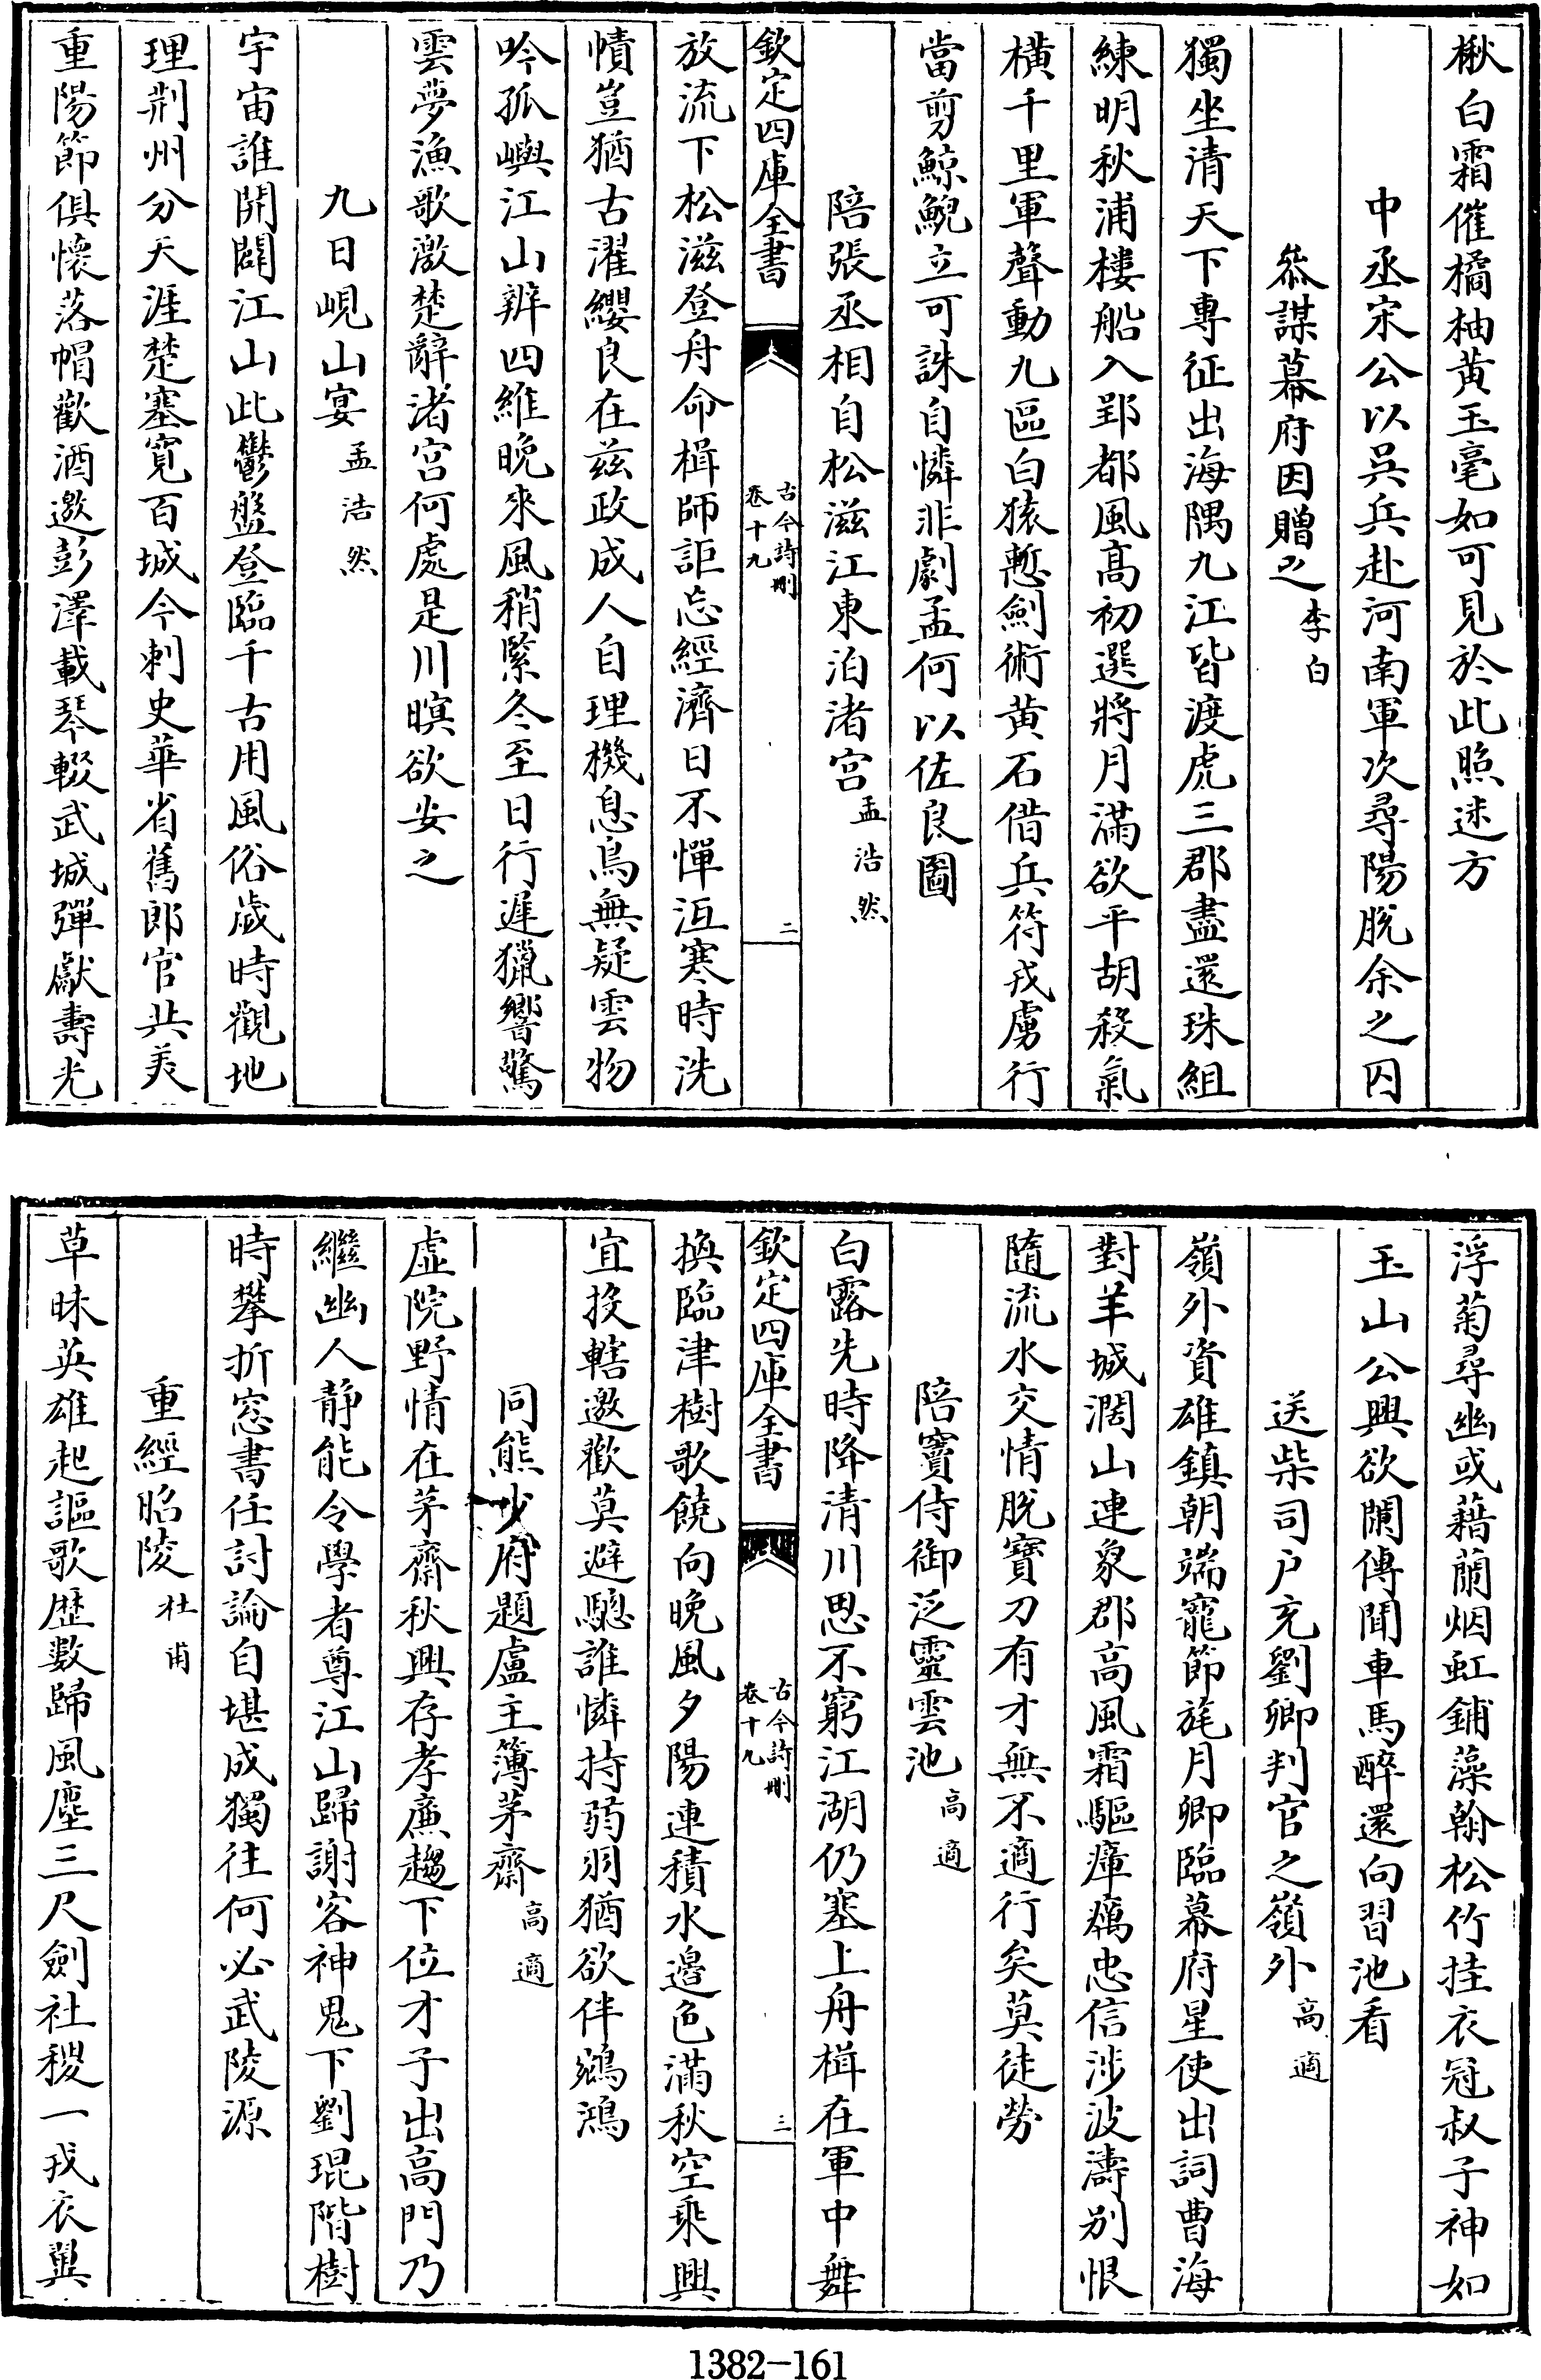 楸白霜催橘柚黄玉毫如可見於此照迷方
中丞宋公以吳兵赴河南軍次尋陽脫余之囚
叅謀幕府因贈之李白
獨坐清天下專征出海隅九江皆渡虎三郡盡還珠組
練明秋浦樓船入郢都風髙初選將月滿欲平胡殺氣
橫千里軍聲動九區白猿慙劍術黄石借兵符戎虜行
當剪鯨鯢立可誅自憐非劇孟何以佐良圖
陪張丞相自松滋江東泊渚宫孟浩然
欽定四庫全書
古今詩刪
卷十九
二
放流下松滋登舟命楫師詎忘經濟日不憚沍寒時洗
幘豈猶古濯纓良在兹政成人自理機息鳥無疑雲物
吟孤嶼江山辨四維晩來風稍緊冬至日行遲獵響驚
雲夢漁歌激楚辭渚宫何處是川暝欲安之
九日峴山宴孟浩然
宇宙誰開闢江山此鬱盤登臨千古用風俗歲時觀地
理荆州分天涯楚塞寛百城今刺史華省舊郎官共美
重陽節俱懷落帽歡酒邀彭澤載琴輟武城彈獻壽光
浮菊尋幽或藉蘭烟虹鋪藻翰松竹挂衣冠叔子神如
玉山公興欲闌傳聞車馬醉還向習池看
送柴司户充劉卿判官之嶺外高適
嶺外資雄鎮朝端寵節旄月卿臨幕府星使出詞曹海
對羊城濶山連象郡高風霜驅瘴癘忠信涉波濤别恨
隨流水交情脫寶刀有才無不適行矣莫徒勞
陪竇侍御泛靈雲池高適
白露先時降清川思不窮江湖仍塞上舟楫在軍中舞
欽定四庫全書
古今詩刪
卷十九
三
換臨津樹歌饒向晩風夕陽連積水邉色滿秋空乘興
宜投轄邀歡莫避驄誰憐持弱羽猶欲伴鵷鴻
同熊少府題盧主簿茅齋高適
虛院野情在茅齋秋興存孝廉趨下位才子出高門乃
繼幽人静能令學者尊江山歸謝客神鬼下劉琨階樹
時攀折窓書任討論自堪成獨往何必武陵源
重經昭陵杜甫
草昧英雄起謳歌歴數歸風塵三尺劍社稷一戎衣翼
1382-161